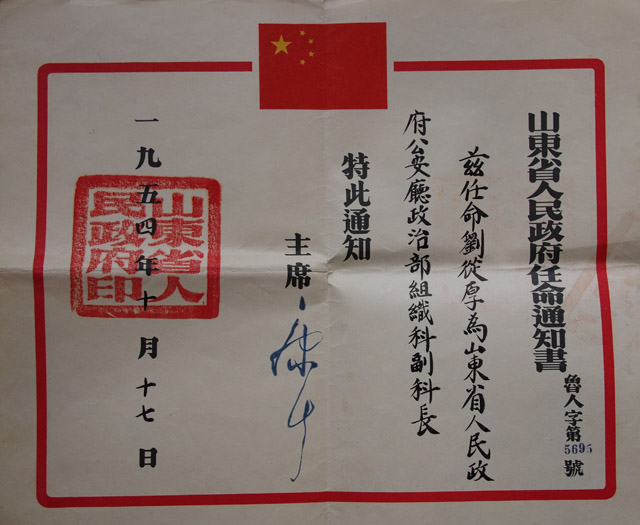 山東省人民政府任命通知書
魯人字第5695號
茲任命劉從厚為山東省人民政
府公安廳政治部組織科副科長
特此通知
主席
一九五四年十月十七日
山東省人民政府印